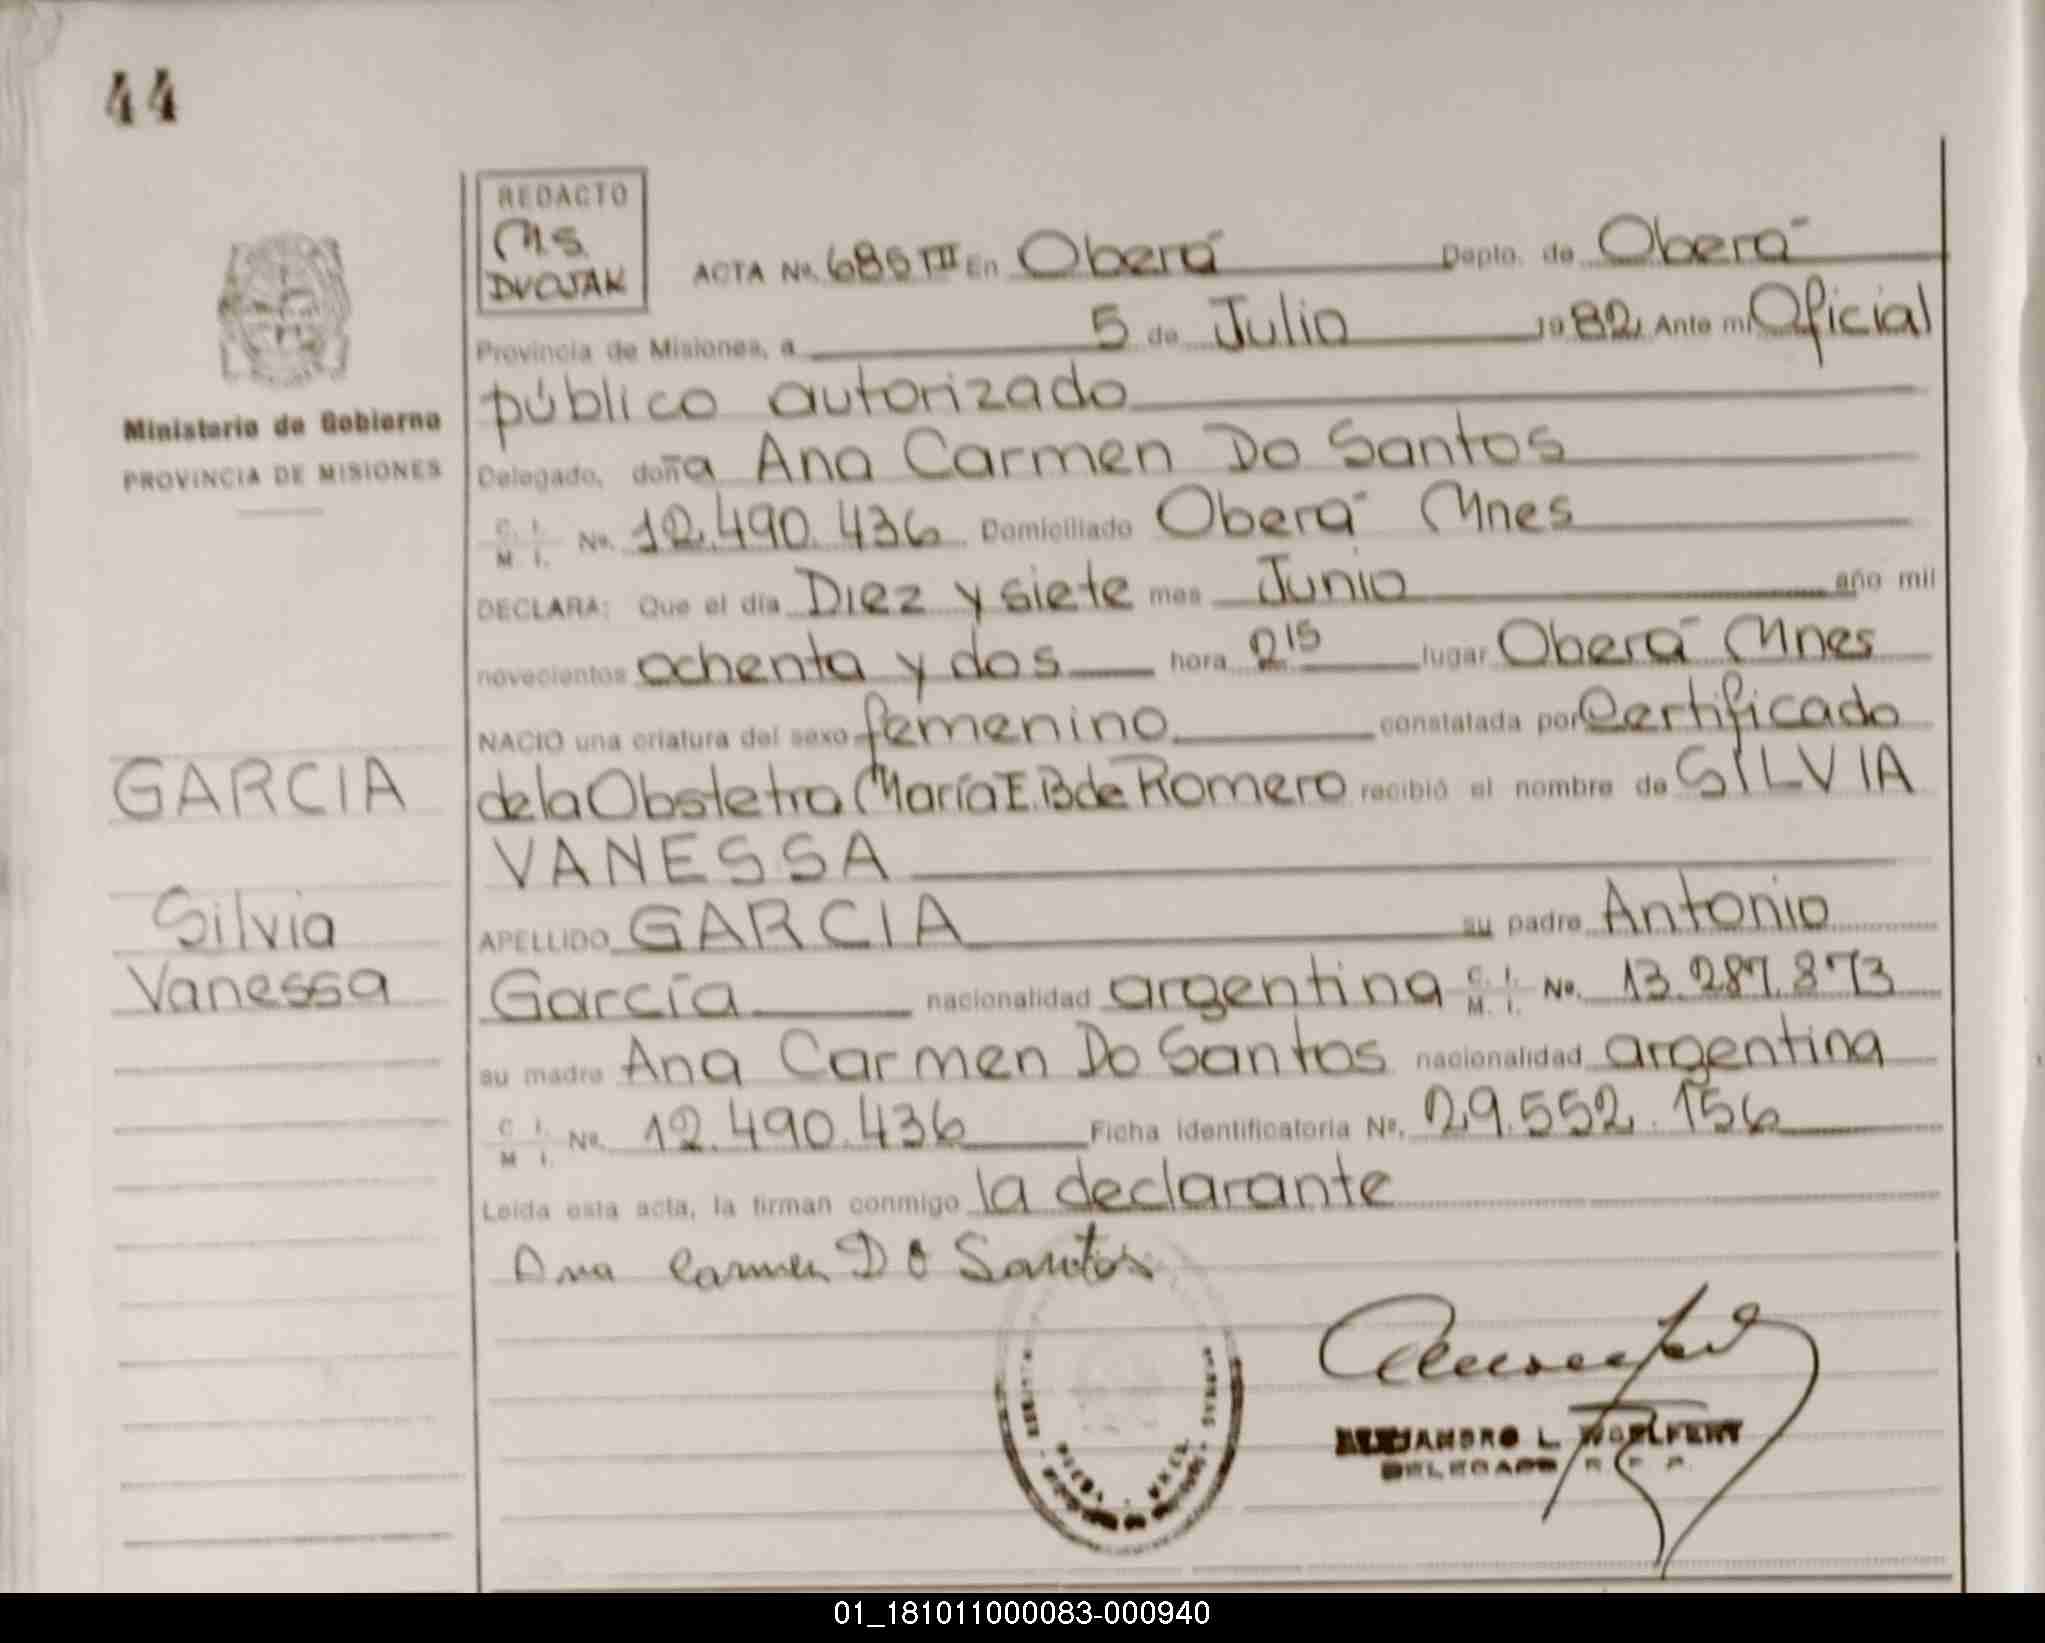 44
REDACTO
M.S.
DVOJAK
ACTA No. 685 III En Oberá Depto. de Oberá
Provincia de Misiones, a 5 de Julio 1982 Ante mi Oficial
público autorizado
Delegado, doña Ana Carmen Do Santos
C. I. M. I. No. 12.490.436 Domiciliado Oberá Mnes
DECLARA: Que el día Diez y siete mes Junio año mil
novecientos ochenta y dos hora 2 15 lugar Oberá Mnes
NACIO una criatura del sexo femenino constatada por Certificado
de la Obstetra María E. B de Romero recibió el nombre de SILVIA
VANESSA
APELLIDO GARCIA su padre Antonio
García nacionalidad argentina C. I. M. I. No. 13.287.873
su madre Ana Carmen Do Santos nacionalidad argentina
C. I. M. I. No. 12.490.436 Ficha identificatoria No. 29.552.156
Leída esta acta, la firman conmigo la declarante
Ana Carmen Do Santos
ALEJANDRO L. WOELFERT
DELEGADO R. P.
Ministerio de Gobierno
PROVINCIA DE MISIONES
GARCIA
Silvia
Vanessa
01_181011000083-000940